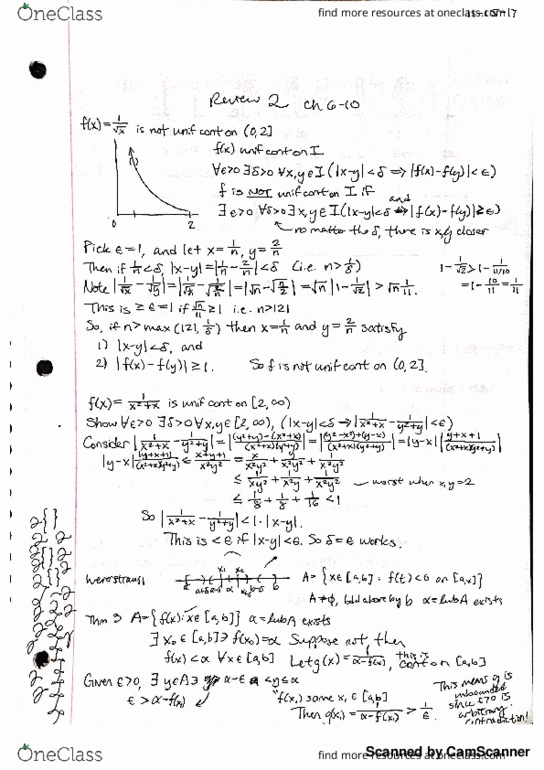 OneClass
find more resources at oneclass.com
Review 2 ch 6-10
f(x) = 1/√x is not unif cont on (0,2]
f(x) unif cont on I
∀ε>0 ∃δ>0 ∀x,y∈I (|x-y|<δ ⟹ |f(x)-f(y)|<ε)
f is NOT unif cont on I if
∃ε>0 ∀δ>0 ∃x,y∈I (|x-y|<δ and |f(x)-f(y)|≥ε)
no matter the δ, there is x,y closer
2
Pick ε=1, and let x=1/n, y=2/n
Then if 1/n<δ, |x-y|=|1/n-2/n|<δ (i.e. n>1/δ)
1-1/√2>1-1/(11/10)
=1-10/11=1/11
Note |1/√x-1/√y|=|1/√(1/n)-1/√(2/n)|=|√n-√(n/2)|=√n|1-1/√2|>√n·1/11.
This is ≥ε=1 if √n/11≥1 i.e. n>121
So, if n>max(121,1/δ) then x=1/n and y=2/n satisfy
1) |x-y|<δ, and
2) |f(x)-f(y)|≥1. So f is not unif cont on (0,2].
f(x)=1/(x²+x) is unif cont on [2,∞)
Show ∀ε>0 ∃δ>0 ∀x,y∈[2,∞), (|x-y|<δ ⟹ |1/(x²+x)-1/(y²+y)|<ε)
Consider |1/(x²+x)-1/(y²+y)|=|((y²+y)-(x²+x))/((x²+x)(y²+y))|=|((y²-x²)+(y-x))/((x²+x)(y²+y))|=|y-x||(y+x+1)/((x²+x)(y²+y))|
|y-x||(y+x+1)/((x²+x)(y²+y))|≤(x+y+1)/(x²y²)=x/(x²y²)+y/(x²y²)+1/(x²y²)
≤1/(xy²)+1/(x²y)+1/(x²y²) worst when x,y=2
≤1/8+1/8+1/16<1
So |1/(x²+x)-1/(y²+y)|<1·|x-y|.
This is <ε if |x-y|<ε. So δ=ε works.
Weierstrass
A={x∈[a,b]: f(t)<0 on [a,x]}
A≠∅, bdd above by b α=lubA exists
Thm 3 A={f(x):x∈[a,b]} α=lubA exists
∃x₀∈[a,b]∋f(x₀)=α Suppose not, then
f(x)<α ∀x∈[a,b] Let g(x)=1/(α-f(x)), this is cont on [a,b]
Given ε>0, ∃y∈A∋ α-ε<y≤α
ε>α-f(x₁) "f(x₁) some x₁∈[a,b]
Then g(x₁)=1/(α-f(x₁))>1/ε.
This means g is unbounded since ε>0 is arbitrary contradiction!
OneClass
find more resources at oneclass.com
Scanned by CamScanner